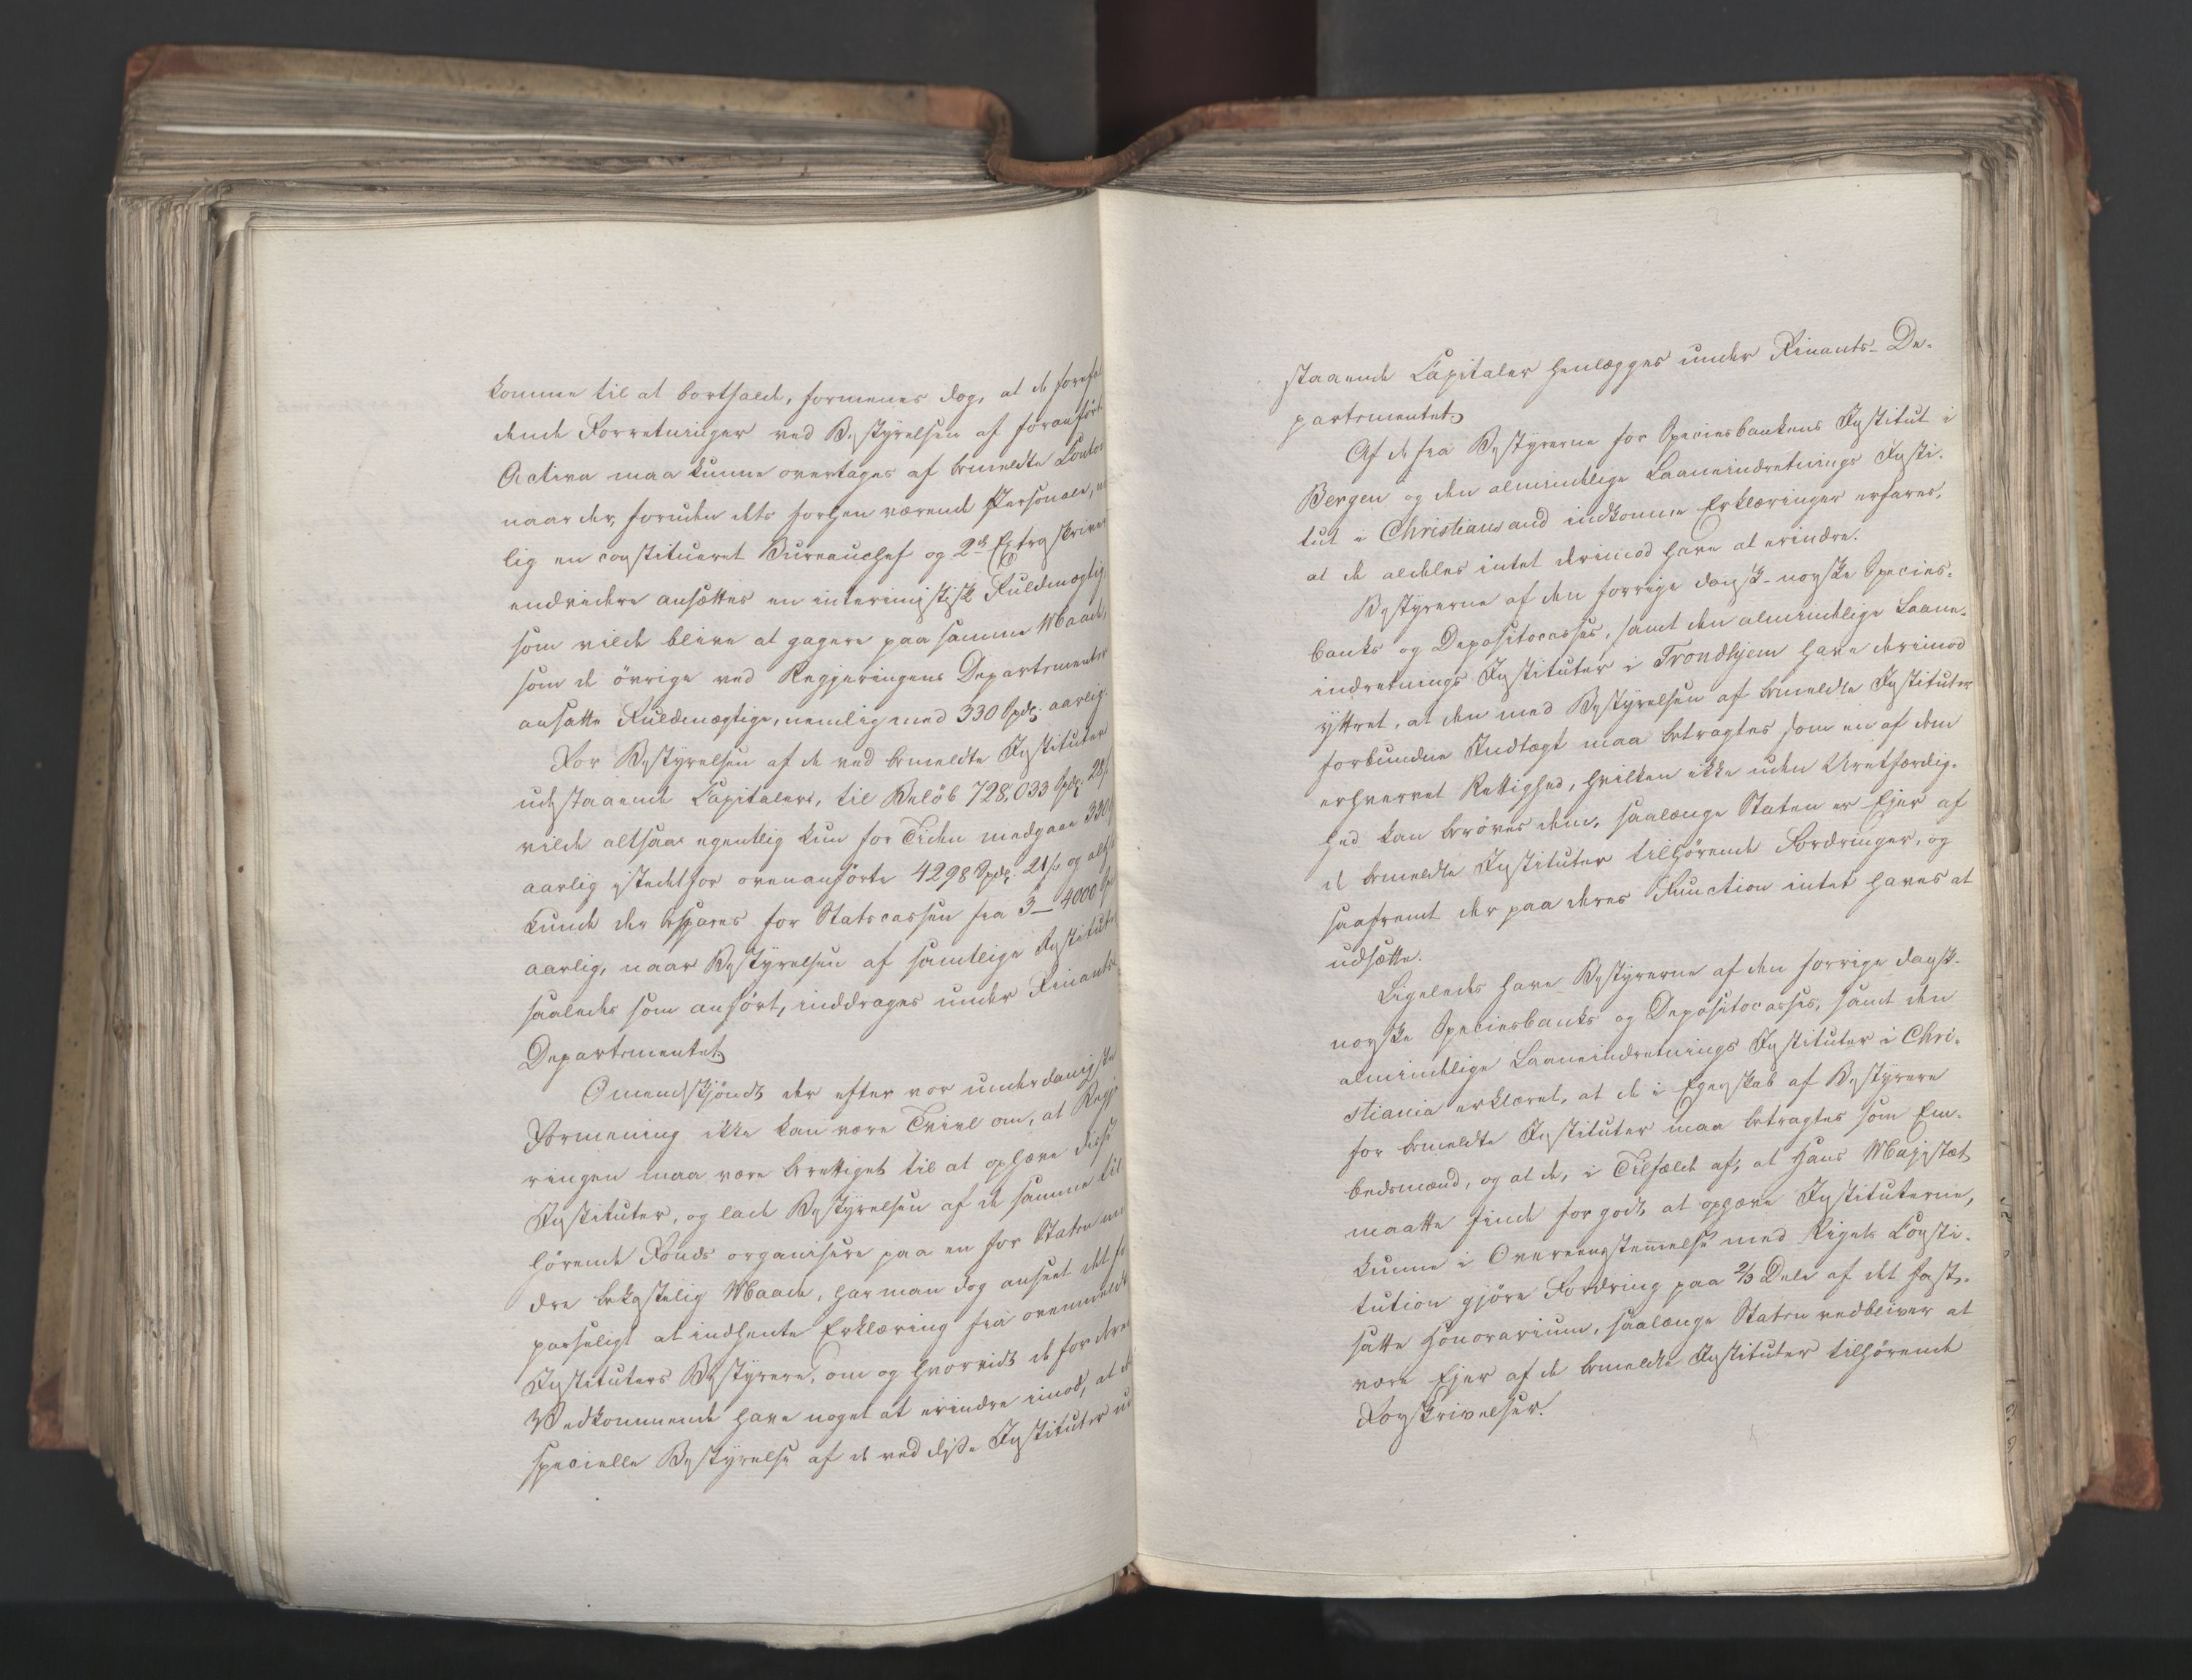 komme til at bortfalde, formenes dog, at de forefal
dende Forretninger ved Bestyrelsen af foranførte
Activa maa kunne overtages af bemeldte Contoir
naar der, foruden dets forhen værende Personale, nem
lig en constitueret Bureauchef og 2de Extraskrivere
endvidere ansættes en interimistisk Fuldmægtig,
som vilde blive at gagere paa samme Maade,
som de øvrige ved Regjeringens Departementer
ansatte Fuldmægtige, nemlig med 330 Spd. aarlig.
For Bestyrelsen af de ved bemeldte Instituter
udestaaende Capitaler, til Beløb 728,033 Spd. 28
vilde altsaa egentlig kun for Tiden medgaae 330
aarlig istedetfor ovenanførte 4298 Spd. 21 s. og altsaa
kunde der bespares for Statscassen fra 3_4000 Spd
aarlig, naar Bestyrelsen af samtlige Institut
saaledes som anført, inddrages under Finants-
Departementet.
Omendskjøndt der efter vor underdanigste
Formening ikke kan være Tvivl om, at Regje
ringen maa være berettiget til at ophæve disse
Instituter, og lade Bestyrelsen af de samme til
hørende Fonds organisere paa en for Staten min
dre bekostelig Maade, har man dog anseet det for
passeligt at indhente Erklæring fra ovenmeldte
Instituters Bestyrere, om og hvorvidt de for deres
Vedkommende have noget at erindre imod, at den
specielle Bestyrelse af de ved disse Instituter ude
staaende Capitaler henlægges under Finants-De-
partementet.
Af de fra Bestyrerne for Speciesbankens Institut i
Bergen og den almindelige Laaneindretnings Insti-
tut i Christiansand indkomne Erklæringer erfares,
at de aldeles intet derimod have at erindre.
Bestyrerne af den forrige dansk-norske Species-
banks og Depositocasses, samt den almindelige Laane-
indretnings Instituter i Trondhjem have derimod
yttret, at den med Bestyrelsen af bemeldte Instituter
forbundne Indtægt maa betragtes som en af dem
erhvervet Rettighed, hvilken ikke uden Uretfærdig-
hed kan berøves dem, saalænge Staten er Ejer af
de bemeldte Instituter tilhørende Fordringer, og
saafremt der paa deres Function intet haves at
udsætte.
Ligeledes have Bestyrerne af den forrige dansk-
norske Speciesbanks og Depositocasses, samt den
almindelige Laaneindretnings Instituter i Chri-
stiania erklæret, at de i Egenskab af Bestyrere
for bemeldte Instituter maa betragtes som Em-
bedsmænd, og at de, i Tilfælde af, at Hans Majestæt
maatte finde for godt at ophæve Instituterne,
kunne i Overeensstemmelse med Rigets Consti-
tution gjøre Fordring paa 2/3 Dele af det fast-
satte Honorarium, saalænge Staten vedbliver at
være Ejer af de bemeldte Instituter tilhørende
Forskrivelser.